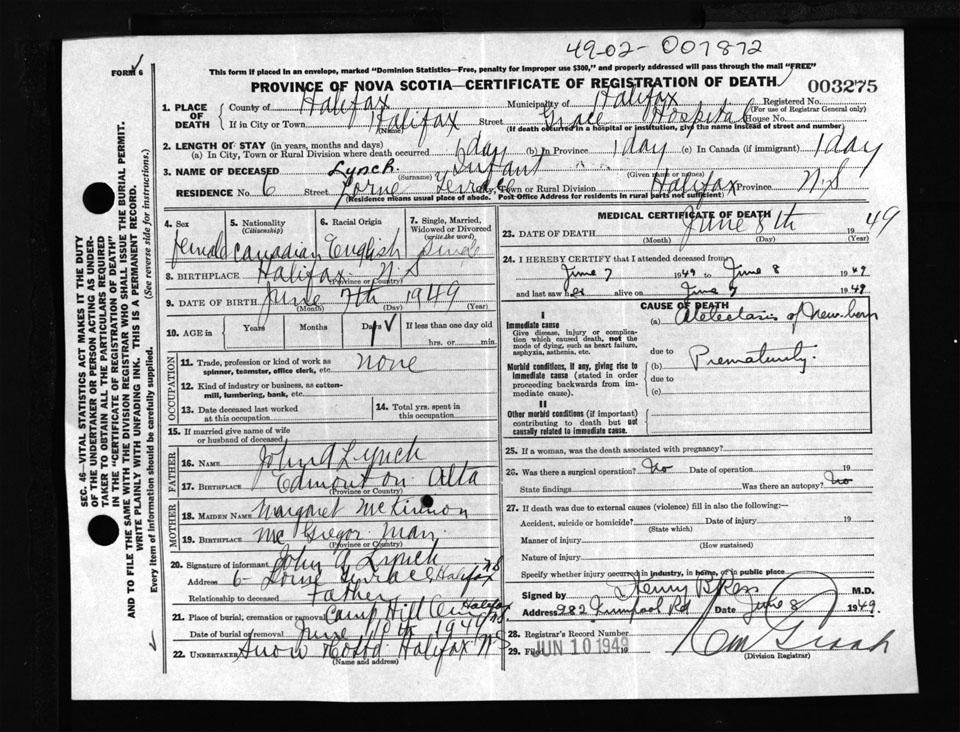 49-02-007872
FORM 6
This form if placed in an envelope, marked "Dominion Statistics—Free, penalty for improper use $300," and properly addressed will pass through the mail "FREE"
PROVINCE OF NOVA SCOTIA—CERTIFICATE OF REGISTRATION OF DEATH
003275
1. PLACE OF DEATH
County of Halifax Municipality of Halifax Registered No.
(For use of Registrar General only)
If in City or Town Halifax Street Grace Hospital House No.
(Name) (If death occurred in a hospital or institution, give the name instead of street and number)
2. LENGTH OF STAY (in years, months and days)
(a) In City, Town or Rural Division where death occurred 1 day (b) In Province 1 day (c) In Canada (if immigrant) 1 day
3. NAME OF DECEASED Lynch. Infant
(Surname) (Given name or names)
RESIDENCE No. 6 Street Lorne Terrace City, Town or Rural Division Halifax Province N.S
(Residence means usual place of abode. Post Office Address for residents in rural parts not sufficient)
4. Sex female
5. Nationality (Citizenship) Canadian
6. Racial Origin English
7. Single, Married, Widowed or Divorced (write the word) Single
8. BIRTHPLACE Halifax N.S
(Province or Country)
9. DATE OF BIRTH June 7th 1949
(Month) (Day) (Year)
10. AGE in Years Months Days 1 If less than one day old
hrs. or min.
OCCUPATION
11. Trade, profession or kind of work as spinner, teamster, office clerk, etc. none
12. Kind of industry or business, as cotton-mill, lumbering, bank, etc.
13. Date deceased last worked at this occupation
14. Total yrs. spent in this occupation
15. If married give name of wife or husband of deceased
FATHER
16. NAME John A Lynch
17. BIRTHPLACE Edmonton Alta
(Province or Country)
MOTHER
18. MAIDEN NAME Margaret McKinnon
19. BIRTHPLACE McGregor Man.
(Province or Country)
20. Signature of informant John A Lynch
Address 6 Lorne Terrace Halifax N.S
Relationship to deceased Father
21. Place of burial, cremation or removal Camp Hill Cem Halifax N.S
Date of burial or removal June 10th 1949
22. UNDERTAKER Snow & Co Ltd. Halifax N.S
(Name and address)
MEDICAL CERTIFICATE OF DEATH
23. DATE OF DEATH June 8th 1949
(Month) (Day) (Year)
24. I HEREBY CERTIFY that I attended deceased from
June 7 1949 to June 8 1949
and last saw her alive on June 7 1949
CAUSE OF DEATH
I
Immediate cause
Give disease, injury or complication which caused death, not the mode of dying, such as heart failure, asphyxia, asthenia, etc.
(a) Atelectasis of New-born
due to
Morbid conditions, if any, giving rise to immediate cause (stated in order proceeding backwards from immediate cause).
(b) Prematurity.
due to
(c)
II
Other morbid conditions (if important) contributing to death but not causally related to immediate cause.
25. If a woman, was the death associated with pregnancy?
26. Was there a surgical operation? No Date of operation 19
State findings Was there an autopsy? No
27. If death was due to external causes (violence) fill in also the following:—
Accident, suicide or homicide? Date of injury 19
(State which)
Manner of injury
(How sustained)
Nature of injury
Specify whether injury occurred in industry, in home, or in public place
Signed by Henry B Ross M.D.
Address 282 Date June 8 1949.
28. Registrar's Record Number
29. Filed JUN 10 1949 19
(Division Registrar)
SEC. 46—VITAL STATISTICS ACT MAKES IT THE DUTY OF THE UNDERTAKER OR PERSON ACTING AS UNDERTAKER TO OBTAIN ALL THE PARTICULARS REQUIRED IN THE "CERTIFICATE OF REGISTRATION OF DEATH" AND TO FILE THE SAME WITH THE DIVISION REGISTRAR WHO SHALL ISSUE THE BURIAL PERMIT.
WRITE PLAINLY WITH UNFADING INK. THIS IS A PERMANENT RECORD.
Every item of information should be carefully supplied. (See reverse side for instructions.)